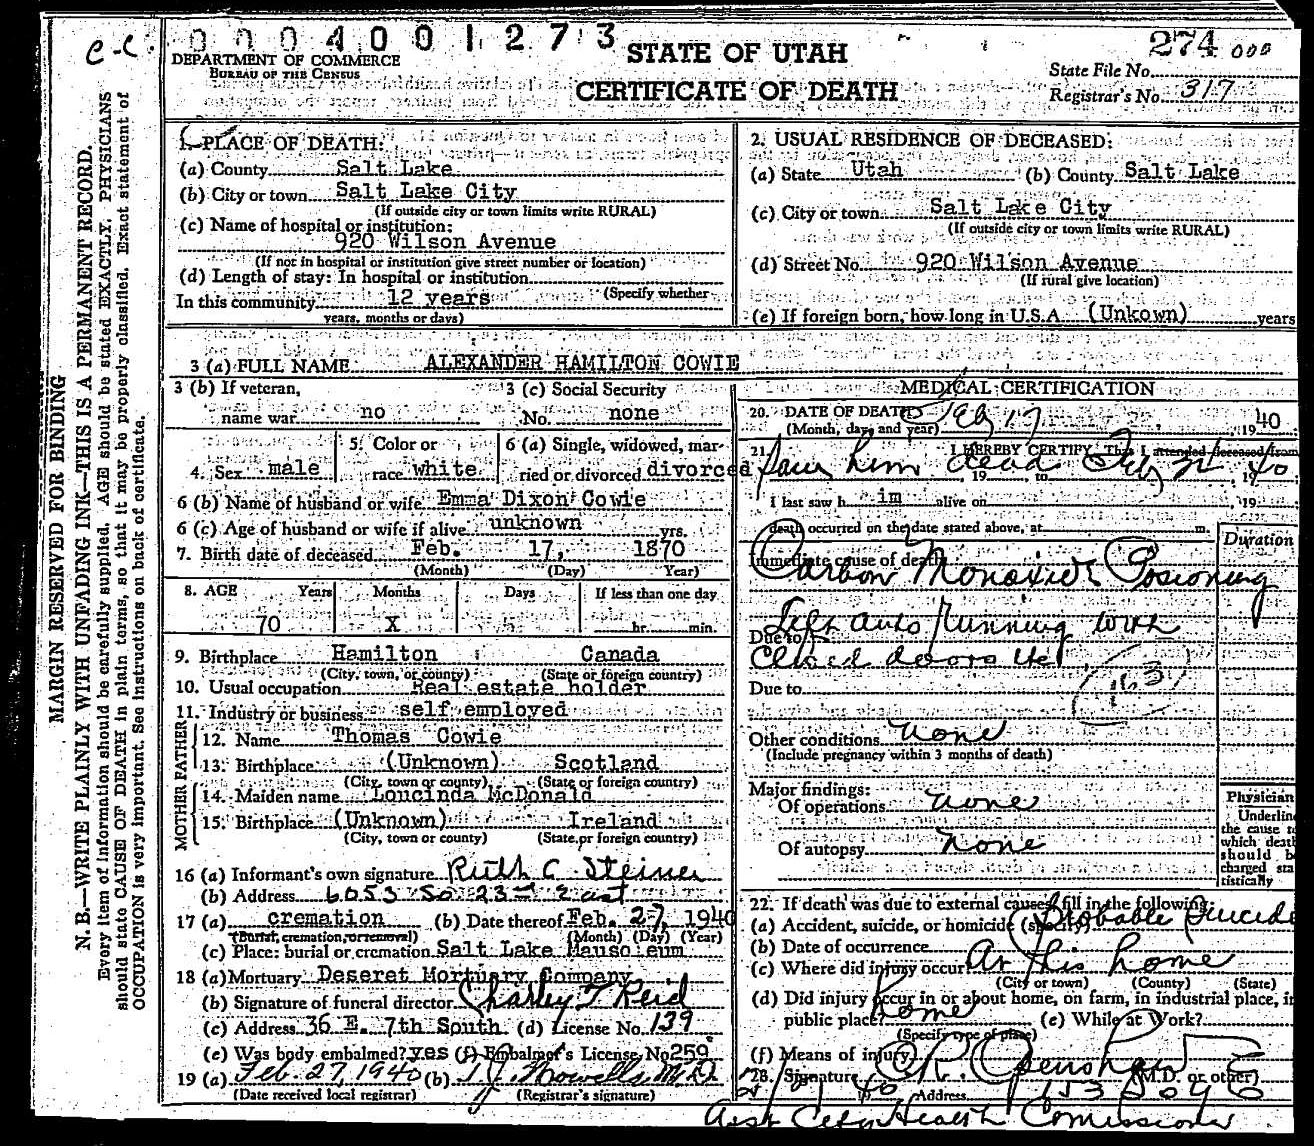 C-C.
0004001273
STATE OF UTAH
CERTIFICATE OF DEATH
DEPARTMENT OF COMMERCE
BUREAU OF THE CENSUS
274 000
State File No.
Registrar's No. 317
MARGIN RESERVED FOR BINDING
N. B.—WRITE PLAINLY WITH UNFADING INK—THIS IS A PERMANENT RECORD.
Every item of information should be carefully supplied. AGE should be stated EXACTLY. PHYSICIANS
should state CAUSE OF DEATH in plain terms, so that it may be properly classified. Exact statement of
OCCUPATION is very important. See instructions on back of certificate.
1. PLACE OF DEATH:
(a) County Salt Lake
(b) City or town Salt Lake City
(If outside city or town limits write RURAL)
(c) Name of hospital or institution:
920 Wilson Avenue
(If not in hospital or institution give street number or location)
(d) Length of stay: In hospital or institution
(Specify whether
In this community 12 years
years, months or days)
2. USUAL RESIDENCE OF DECEASED:
(a) State Utah (b) County Salt Lake
(c) City or town Salt Lake City
(If outside city or town limits write RURAL)
(d) Street No. 920 Wilson Avenue
(If rural give location)
(e) If foreign born, how long in U.S.A. (Unkown) years
3 (a) FULL NAME ALEXANDER HAMILTON COWIE
3 (b) If veteran,
name war no
3 (c) Social Security
No. none
4. Sex male
5. Color or
race white
6 (a) Single, widowed, mar-
ried or divorced divorced
6 (b) Name of husband or wife Emma Dixon Cowie
6 (c) Age of husband or wife if alive unknown yrs.
7. Birth date of deceased Feb. 17, 1870
(Month) (Day) Year)
8. AGE Years Months Days If less than one day
70 X hr. min.
9. Birthplace Hamilton Canada
(City, town, or county) (State or foreign country)
10. Usual occupation Real estate holder
11. Industry or business self employed
FATHER
12. Name Thomas Cowie
13. Birthplace (Unknown) Scotland
(City, town or county) (State or foreign country)
MOTHER
14. Maiden name Loucinda McDonald
15. Birthplace (Unknown) Ireland
(City, town or county) (State or foreign country)
16 (a) Informant's own signature Ruth C Steiner
(b) Address 6053 So 23rd East
17 (a) cremation (b) Date thereof Feb. 27, 1940
(Burial, cremation, or removal) (Month) (Day) (Year)
(c) Place: burial or cremation Salt Lake Mausoleum
18 (a) Mortuary Deseret Mortuary Company
(b) Signature of funeral director Charley T Reid
(c) Address 36 E. 7th South (d) License No. 139
(e) Was body embalmed? yes (f) Embalmer's License No 259
19 (a) Feb. 27, 1940 (b)
(Date received local registrar) (Registrar's signature)
MEDICAL CERTIFICATION
20. DATE OF DEATH Feb 17 1940
(Month, day, and year)
21. I HEREBY CERTIFY, That I attended deceased from
saw him dead Feb 40
, 19 , to , 19
I last saw h im alive on , 19
death occurred on the date stated above, at m.
Duration
Immediate cause of death
Carbon Monoxide Posioning
Due to Left auto running with
closed doors
Due to 163
Other conditions none
(Include pregnancy within 3 months of death)
Major findings:
Of operations none
Of autopsy none
Physician
Underline
the cause to
which death
should be
charged sta
tistically
22. If death was due to external causes, fill in the following:
(a) Accident, suicide, or homicide (specify) Probable Suicide
(b) Date of occurrence
(c) Where did injury occur? At his home
(City or town) (County) (State)
(d) Did injury occur in or about home, on farm, in industrial place, in
public place? home (e) While at Work?
(Specify type of place)
(f) Means of injury
23. Signature C.R. Openshaw (M.D. or other)
40 Address 153 So 9 E
Asst City Health Comissioner